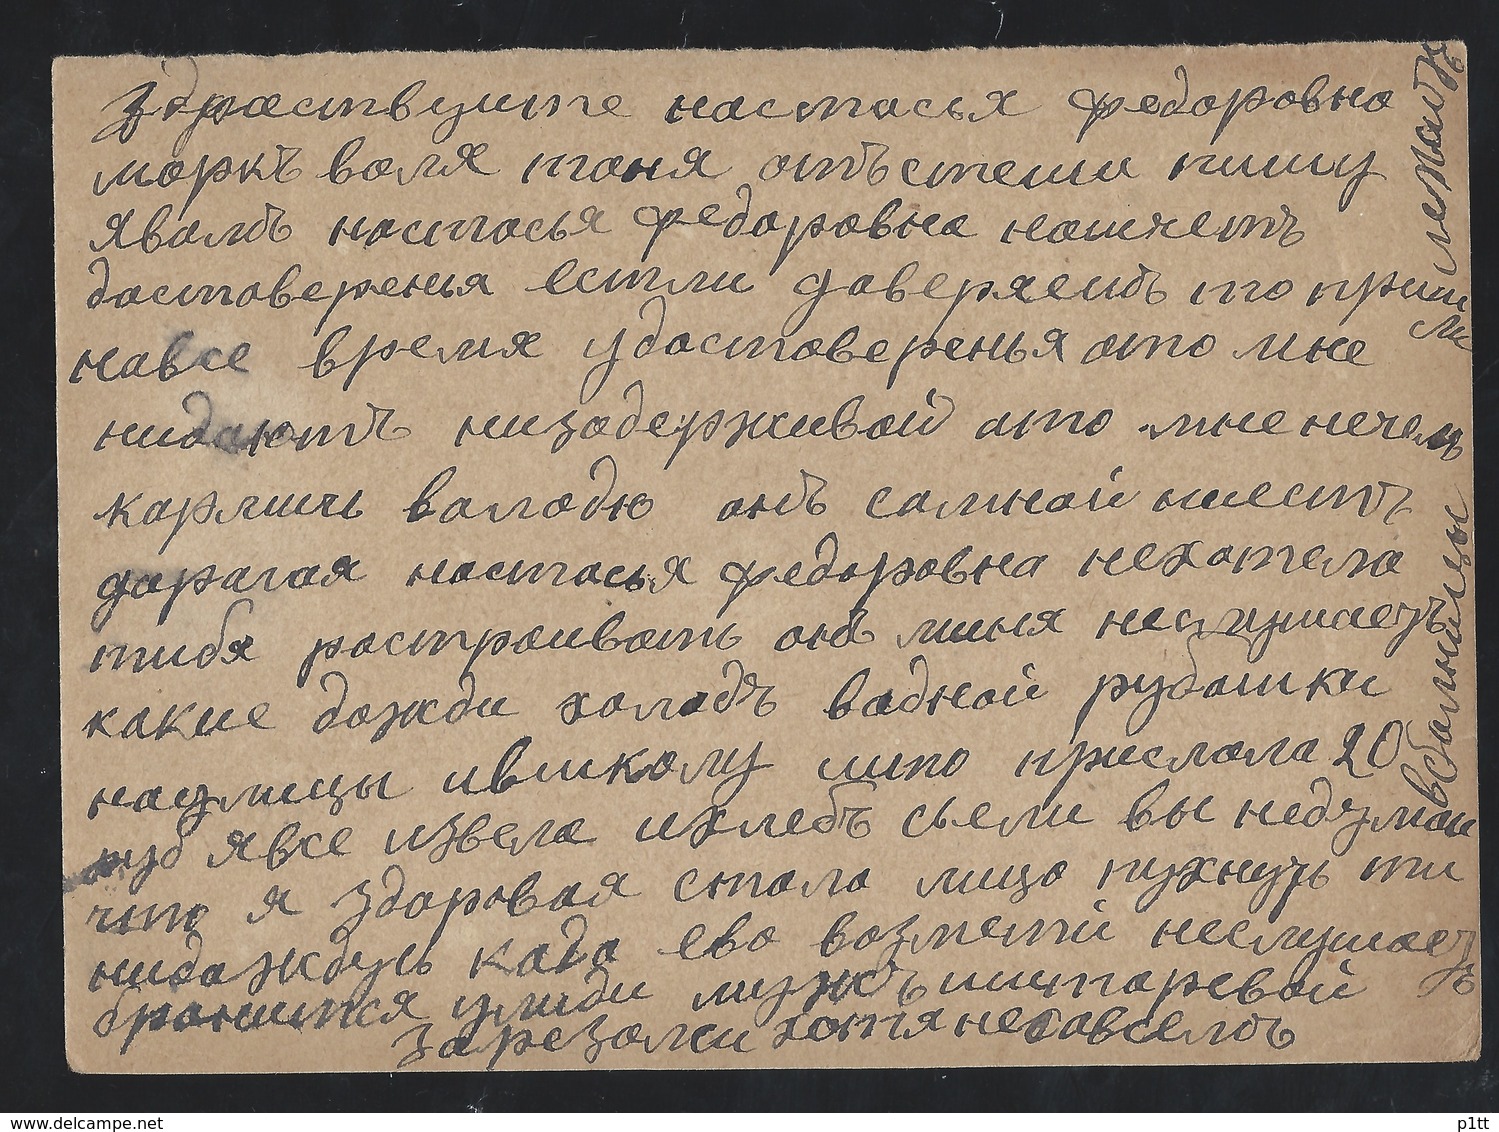 Здраствуите настасья федоровна
маркъ валя таня отъ стеши пишу
я вамъ настасья федоровна нащетъ
достоверенья естли доверяешь то пришли
на все время удостоверенья ато мне
нидаютъ низадерживай ато мне нечемъ
кармить валодю онъ самной ниестъ
дарагая настасья федоровна нехотела
тибя растраивать онъ миня неслушаетъ
какие дожди холодъ водной рубашки
наулицы ившколу што прислала 20
руб явсе извела ихлебъ сьели вы недумаи
что я здоровая стала лицо пухнуть ти
нидаждусь када ево возмети неслушаетъ
бранится улюди мужъ
зарезали хотя несавсемъ
вболницы лежалъ
p1tt
delcampe.net